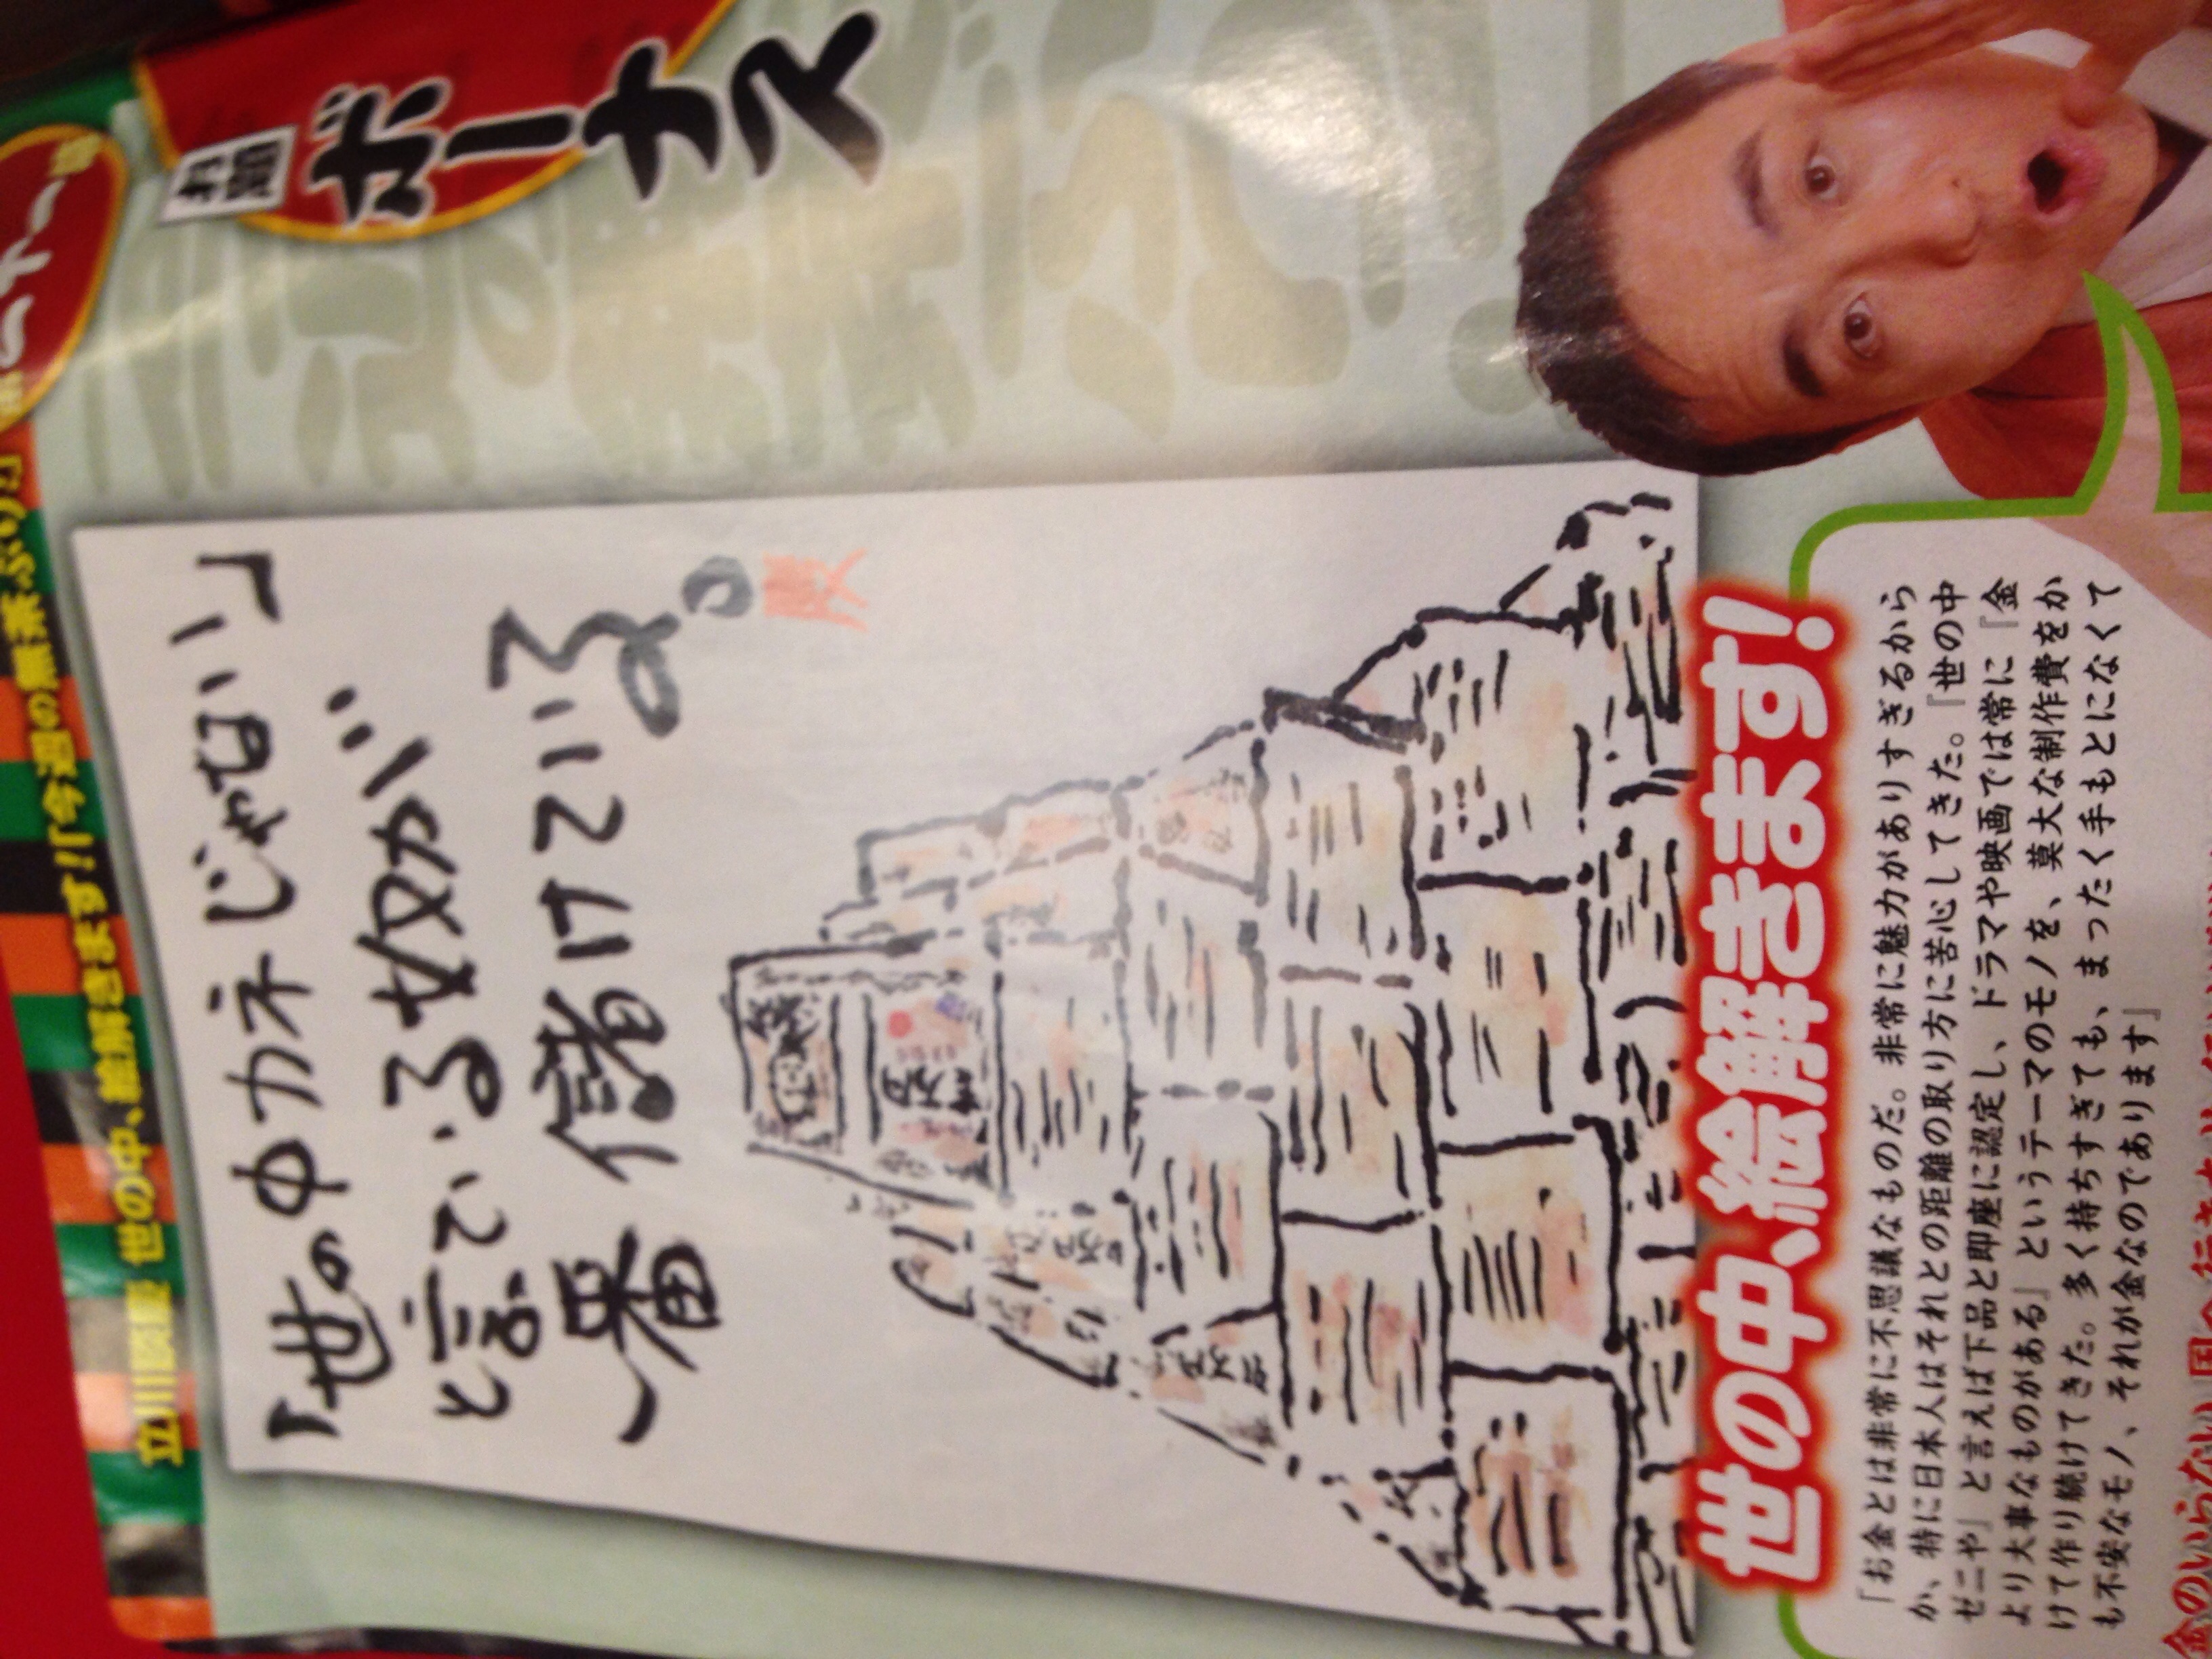 立川談慶 世の中、絵解きます!「今週の無茶ぶり」
お題
ボーナス
「世の中カネじゃない」
と言っている奴が
一番儲けている。
世の中、絵解きます!
「お金とは非常に不思議なものだ。非常に魅力がありすぎるから
か、特に日本人はそれとの距離の取り方に苦心してきた。『世の中
ゼニや』と言えば下品と即座に認定し、ドラマや映画では常に『金
より大事なものがある』というテーマのモノを、莫大な制作費をか
けて作り続けてきた。多く持ちすぎても、まったく手もとになくて
も不安なモノ、それが金なのであります』